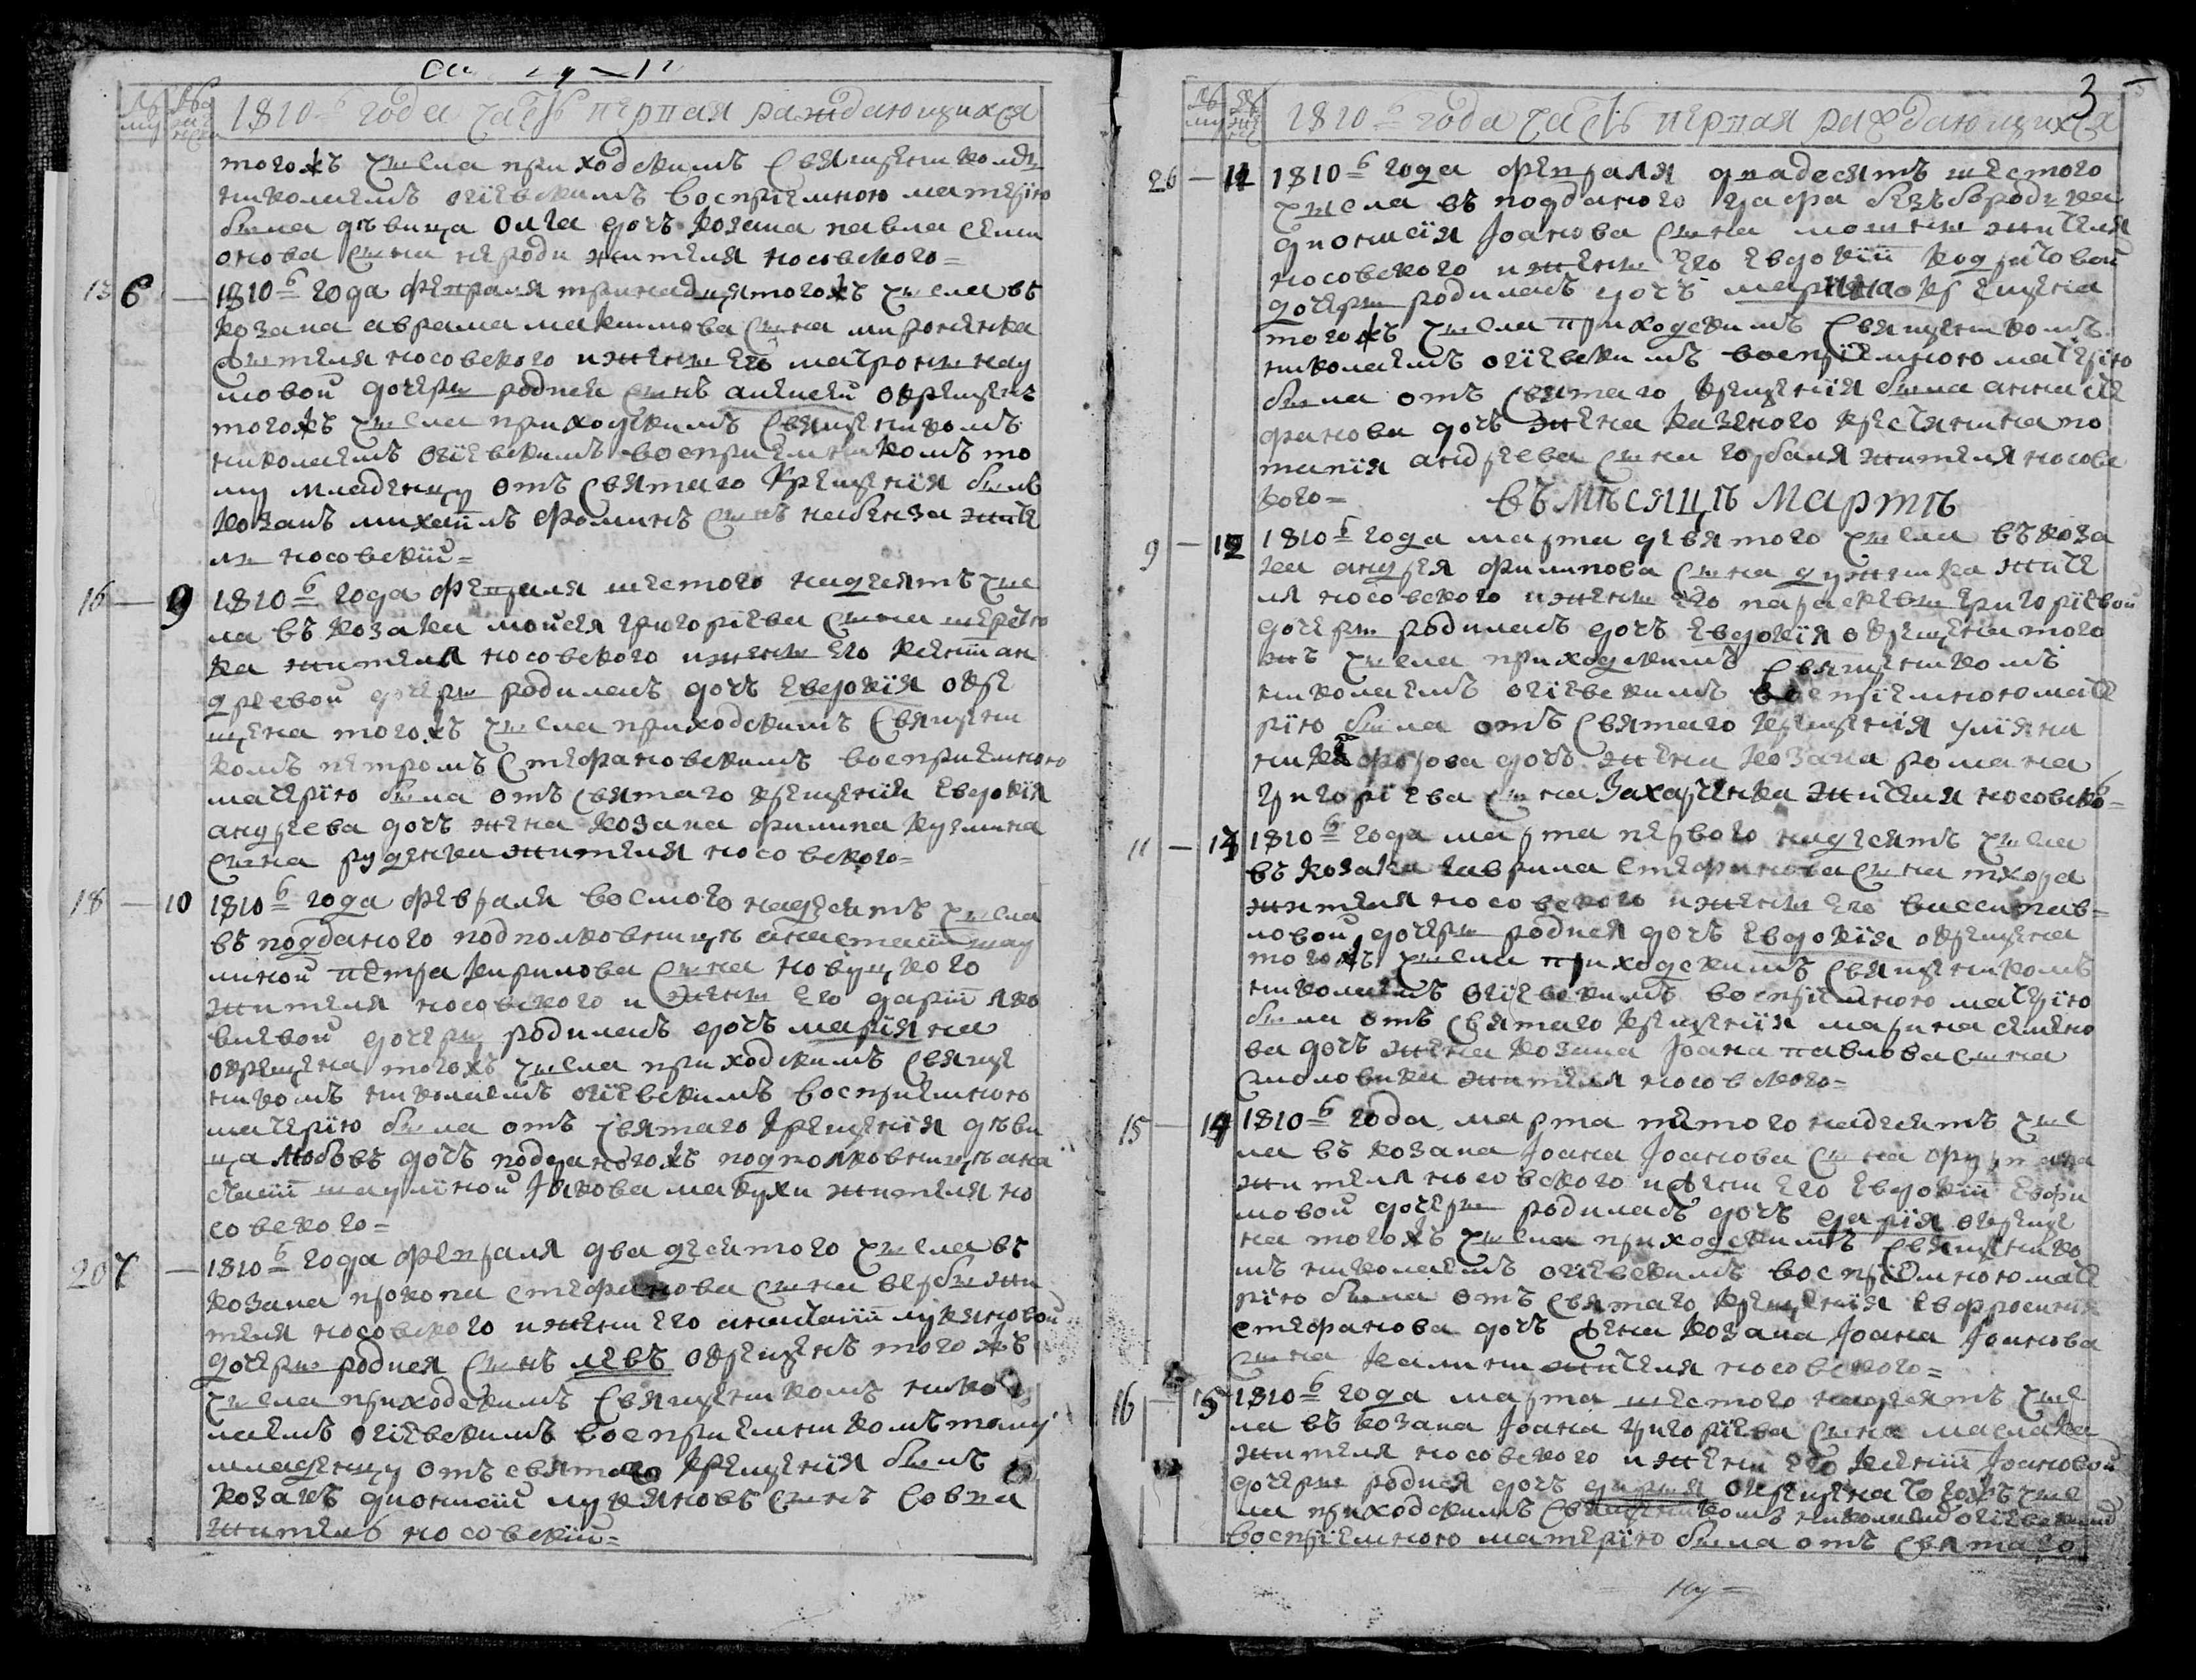 1810 года часть первая раждающихся
тогожъ числа приходскимъ священникомъ
николаемъ огіевскимъ воспріемною матерію
была дѣвица Олга дочъ козака павла семи
онова сына жителя носовского=
13 6 — 1810 года февраля тринадцятогожъ числа въ
козака аврама максимова сына мироненка
жителя носовского и жены его матроны нау
мовой дочеры родися сынъ алексей окрещенъ
тогожъ числа приходскимъ священникомъ
николаемъ огіевскимъ воспріемникомъ то
му младенцу отъ святаго крещенія былъ
козакъ михаилъ фоминъ сынъ жите
ль носовскій=
16 — 9 1810 года февраля шестого надцеятъ чис
ла въ козака мойсея григоріева сына
ка жителя носовского и жены его ксеніи ан
дреевой дочеры родилась дочъ евдокія окре
щена тогожъ числа приходскимъ священни
комъ петромъ стефановскимъ воспріемною
матерію была отъ святаго крещенія евдокія
андреева дочъ жена козака филипа кузмина
сына руденка жителя носовского=
18 — 10 1810 года февраля восмого надцеятъ числа
въ подданого подполковницѣ анастасіи шау
линой петра кирилова сына
жителя носовского и жены его даріи яко
влевой дочеры родилась дочъ маріяна
окрещена тогожъ числа приходскимъ свяще
нникомъ николаемъ огіевскимъ воспріемною
матерію была отъ святаго крещенія дѣви
ца любовъ дочъ подданогожъ подполковницѣ ана
стасіи шаулиной якова макухи жителя но
совского=
20 7 — 1810 года февраля двадцеятого числа въ
козака прокопа стефанова сына жи
теля носовского и жены его анастасіи лукяновой
дочеры родися сынъ левъ окрещенъ того жъ
числа приходскимъ священникомъ нико
лаемъ огіевскимъ воспріемникомъ тому
младенцу отъ святаго крещенія былъ
козакъ діонисій лукяновъ сынъ
житель носовскій=
3
1810 года часть первая раждающихся
26 — 11 1810 года февраля двадесятъ шестого
числа въ подданого графа безбородка
діонисія іоанова сына жителя
носовского и жены его евдокіи кодратовой
дочеры родилась дочъ окрещена
тогожъ числа приходскимъ священникомъ
николаемъ огіевскимъ воспріемною матерію
была отъ святаго крещенія была анна сте
фанова дочъ жена казеного крестянина по
тапія андреева сына горбаля жителя носовс
кого=
въ мѣсяцѣ мартѣ
9 — 12 1810 года марта девятого числа въ коза
ка андрея филипова сына жите
ля носовского и жены его параскевы григоріевой
дочеры родилась дочъ евдокія окрещена того
жъ числа приходскимъ священникомъ
николаемъ огіевскимъ воспріемною мате
рію была отъ святаго крещенія уліяна
никифорова дочъ жена козака романа
григоріева сына захарченка жителя носовско=
11 — 13 1810 года марта первого надцеятъ числа
въ козака гаврила стефанова сына тхора
жителя носовского и жены его васси пав=
ловой дочеры родися дочъ евдокія окрещена
тогожъ числа приходскимъ священникомъ
николаемъ огіевскимъ воспріемною матерію
была отъ святаго крещенія марина семено
ва дочъ жена козака іоана павлова сына
смоловика жителя носовского=
15 — 14 1810 года марта пятого надцеятъ чис
ла въ козака іоана іоанова сына
жителя носовского и жены его евдокіи ефи
мовой дочеры родилась дочъ дарія окреще
на тогожъ числа приходскимъ священнико
мъ николаемъ огіевскимъ воспріемною мате
рію была отъ святаго крещенія евфросинія
стефанова дочъ жена козака іоана іоанова
сына калини жителя носовского=
16 — 15 1810 года марта шестого надцеятъ чис
ла въ козака іоана григоріева сына маслака
жителя носовского и жены его ксеніи іоановой
дочеры родися дочъ дарія окрещена тогожъ чис
ла приходскимъ священникомъ николаемъ огіевскимъ
воспріемною матерію была отъ святаго